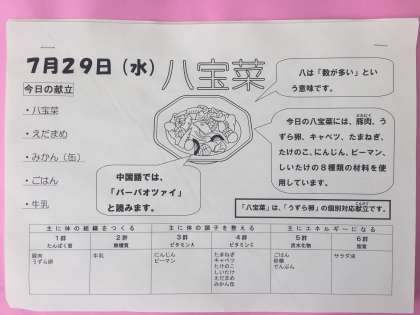 7月29日（水）
八宝菜
今日の献立
・八宝菜
・えだまめ
・みかん（缶）
・ごはん
・牛乳
八は「数が多い」とい
う意味です。
今日の八宝菜には、豚肉、う
ずら卵、キャベツ、たまねぎ、
たけのこ、にんじん、ピーマン、
しいたけの８種類の材料を使
用しています。
中国語では、
「パーパオツァイ」
と読みます。
「八宝菜」は、「うずら卵」の個別対応献立です。
主に体の組織をつくる
主に体の調子を整える
主にエネルギーになる
1群 2群 3群 4群 5群 6群
たんぱく質 無機質 ビタミンA ビタミンC 炭水化物 脂質
豚肉 牛乳 にんじん たまねぎ ごはん サラダ油
うずら卵 ピーマン キャベツ 砂糖
たけのこ でんぷん
しいたけ
えだまめ
みかん缶